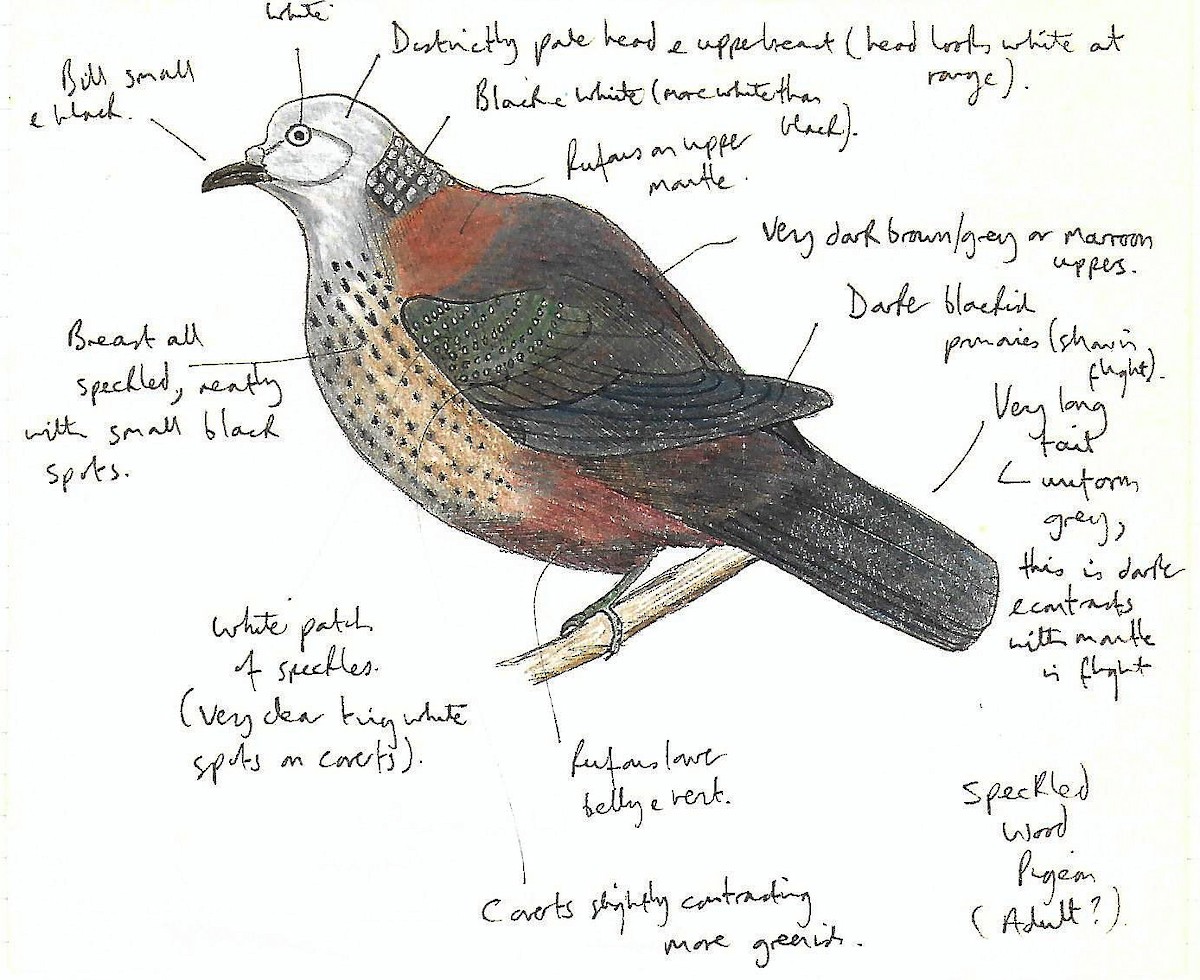 white
Distinctly pale head & upperbreast (head looks white at
range).
Bill small
& black.
Black & white (more white than
black).
Rufous on upper
mantle.
Very dark brown/grey or maroon
uppers.
Dark blackish
primaries (show in
flight).
Breast all
speckled, neatly
with small black
spots.
Very long
tail
uniform
grey,
this is dark
& contrasts
with mantle
in flight
White patch
of speckles.
(Very clear tiny white
spots on coverts).
Rufous lower
belly & vent.
Speckled
Wood
Pigeon
(Adult?).
Coverts slightly contrasting
more greenish.